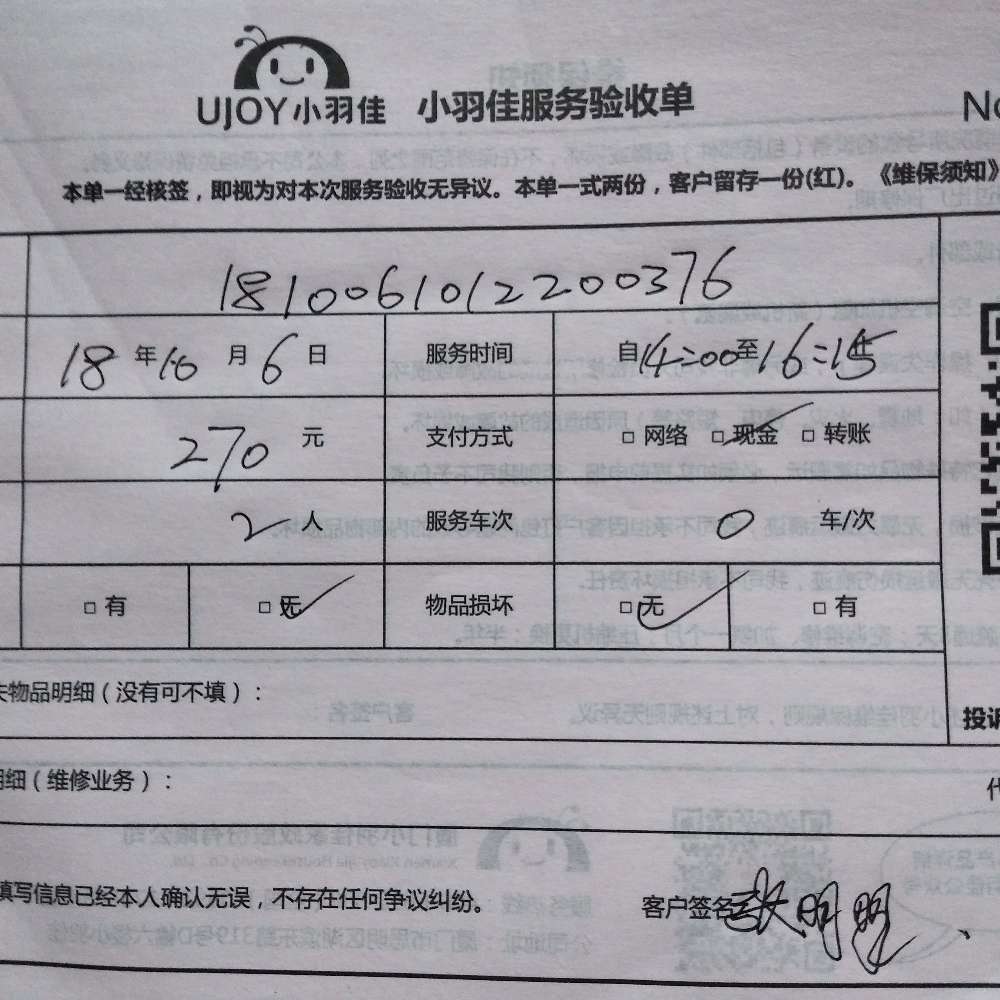 UJOY小羽佳 小羽佳服务验收单 No
本单一经核签，即视为对本次服务验收无异议。本单一式两份，客户留存一份(红)。《维保须知》
1810061012200376
18年10月6日 服务时间 自14:00至16:15
270元 支付方式 □网络 □现金 □转账
2人 服务车次 0 车/次
□有 □无 物品损坏 □无 □有
失物品明细（没有可不填）：
投诉
明细（维修业务）：
填写信息已经本人确认无误，不存在任何争议纠纷。 客户签名